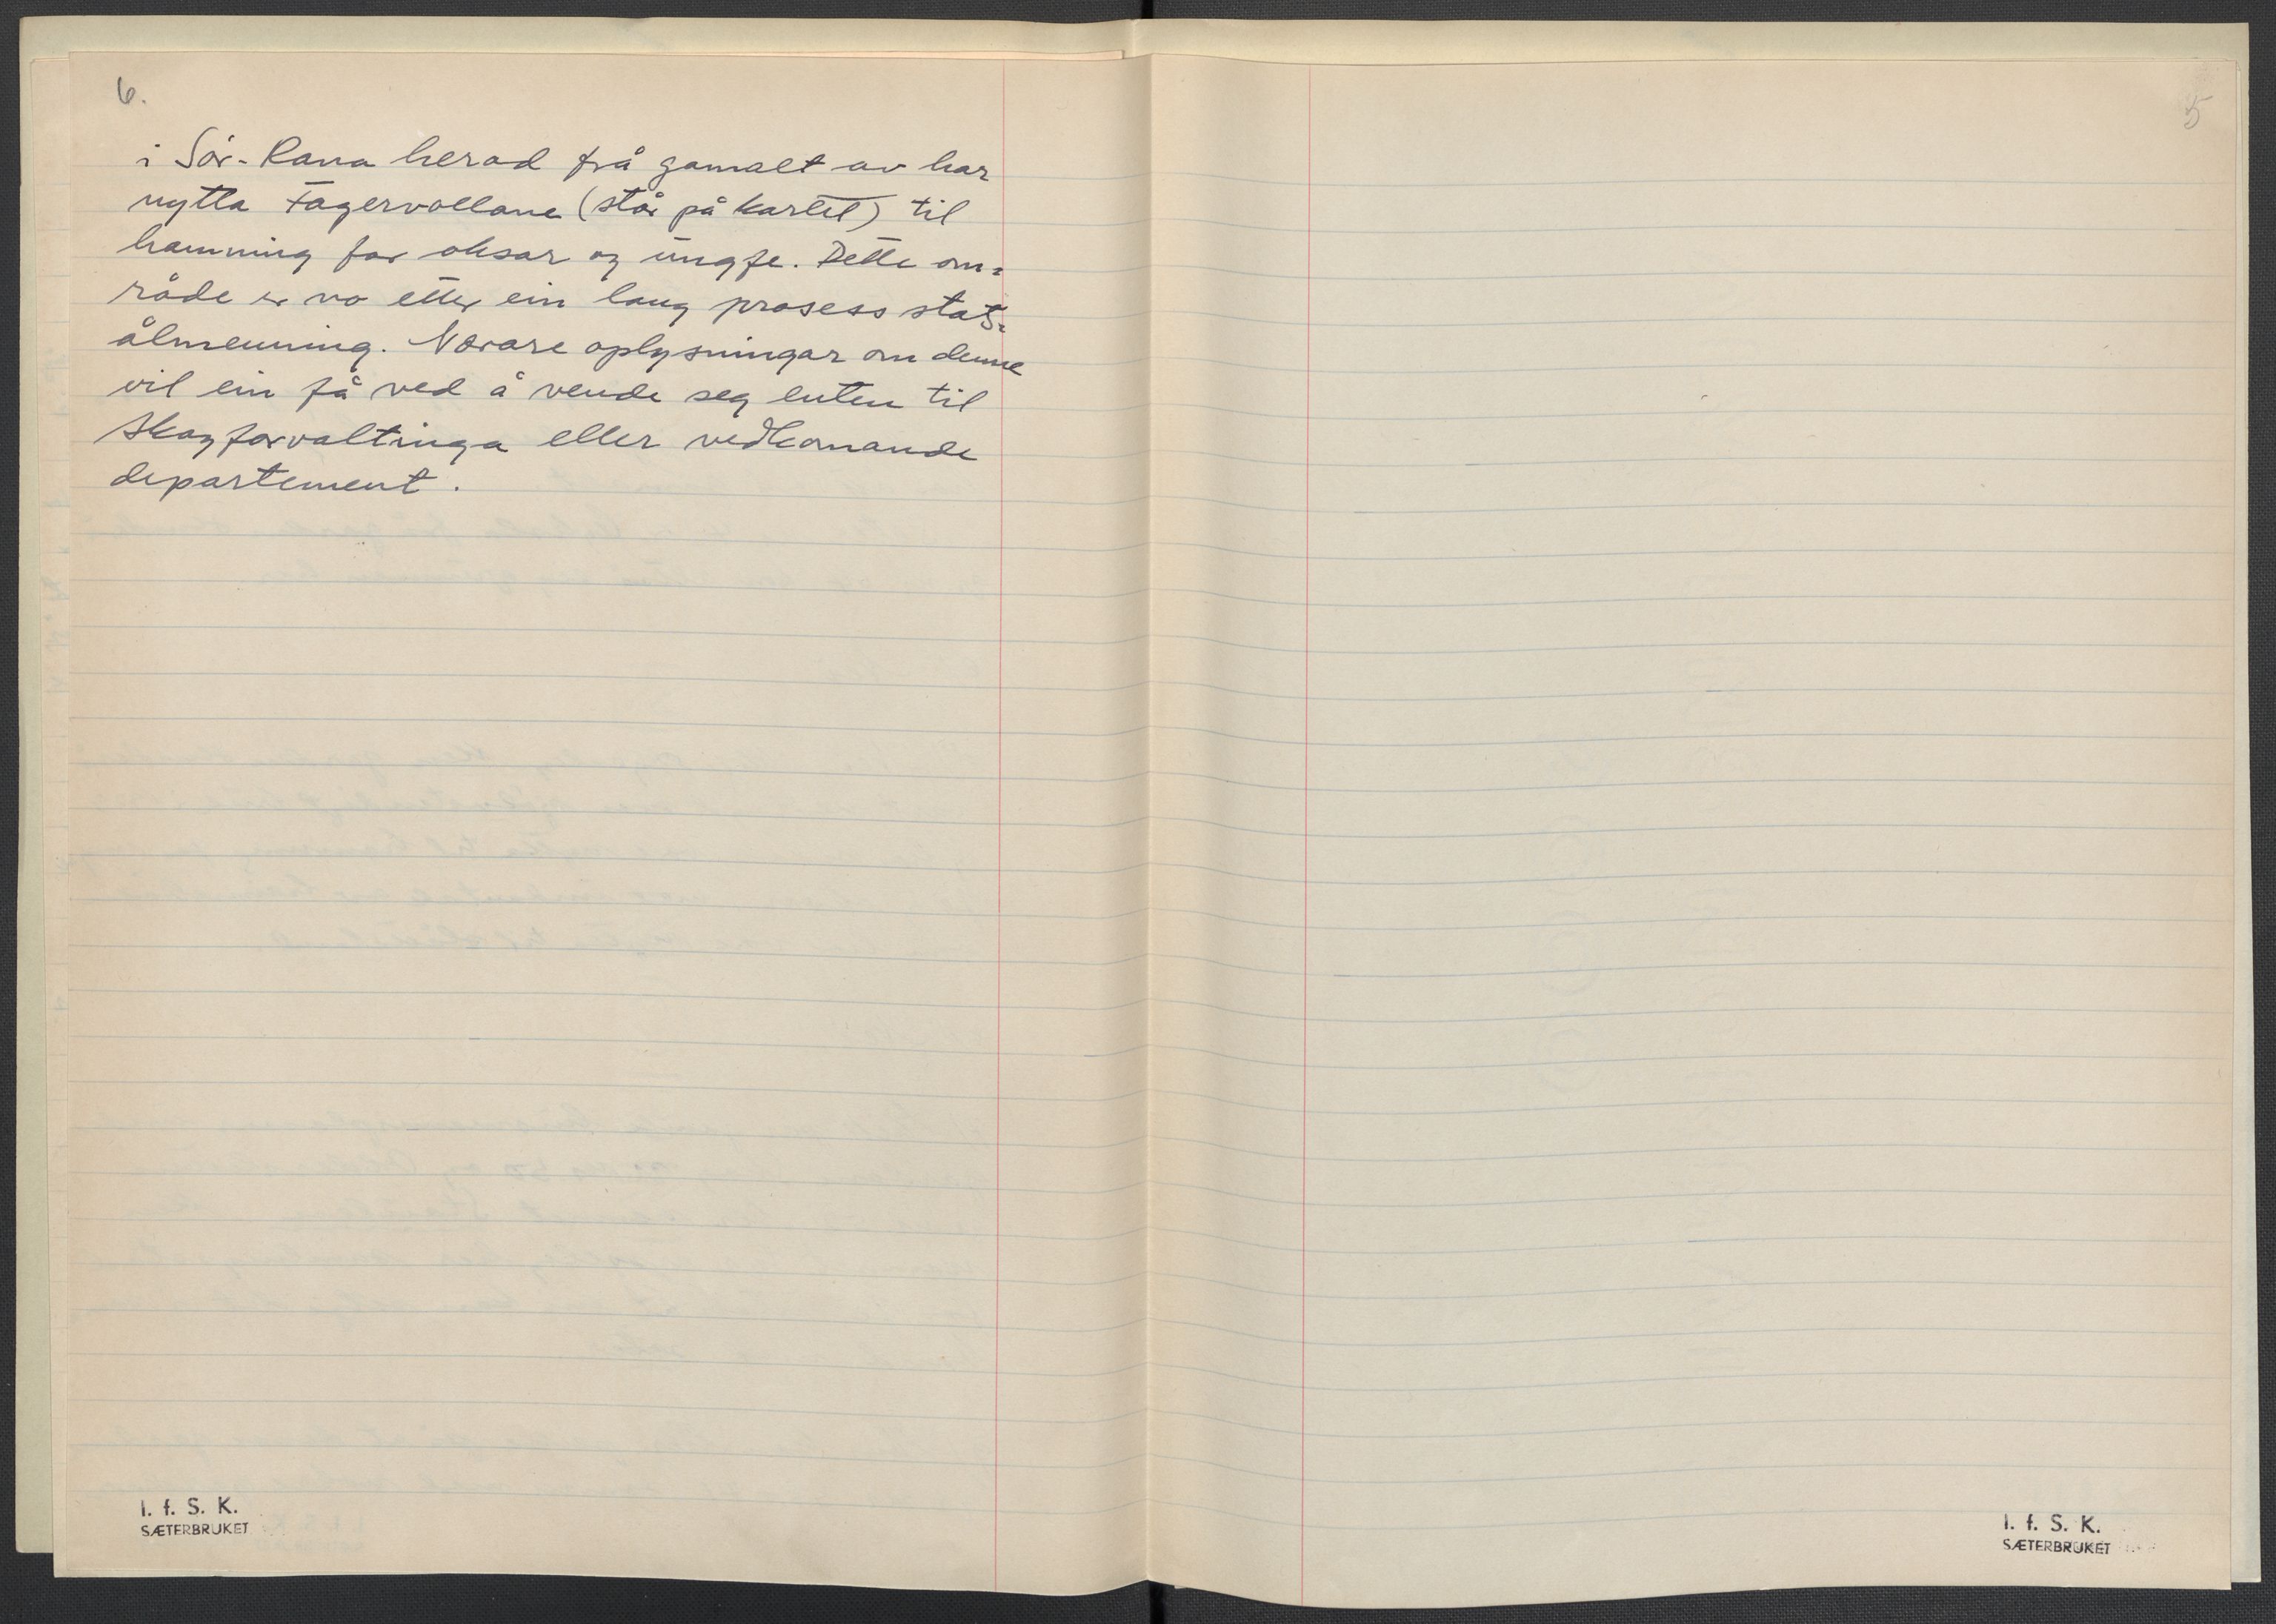 6.
i Sør-Rana herad frå gamalt av har
nytta Fagervollane (står på kartet) til
hamning for oksar og ungfe. Dette om=
råde er no etter ein lang prosess stats=
ålmenning. Nærare oplysningar om denne
vil ein få ved å vende seg enten til
Skogforvaltninga eller vedkomande
departement.
I. f. S. K.
SÆTERBRUKET
5
I. f. S. K.
SÆTERBRUKET